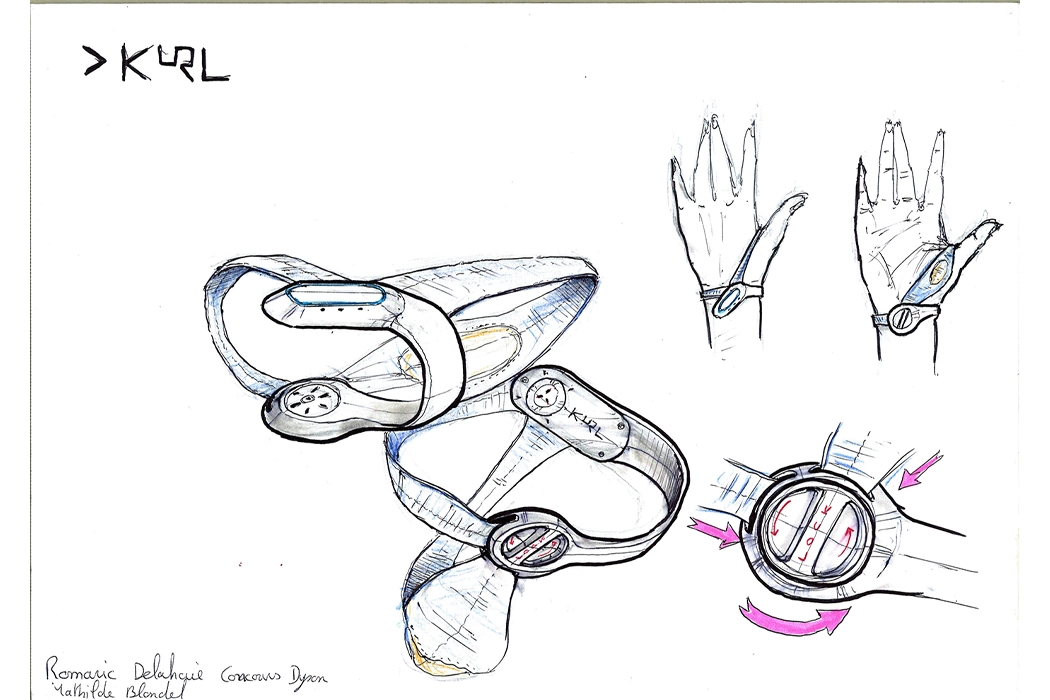 >KURL
KURL
Romaric Delahaie Concours Dyson
Mathilde Blondel